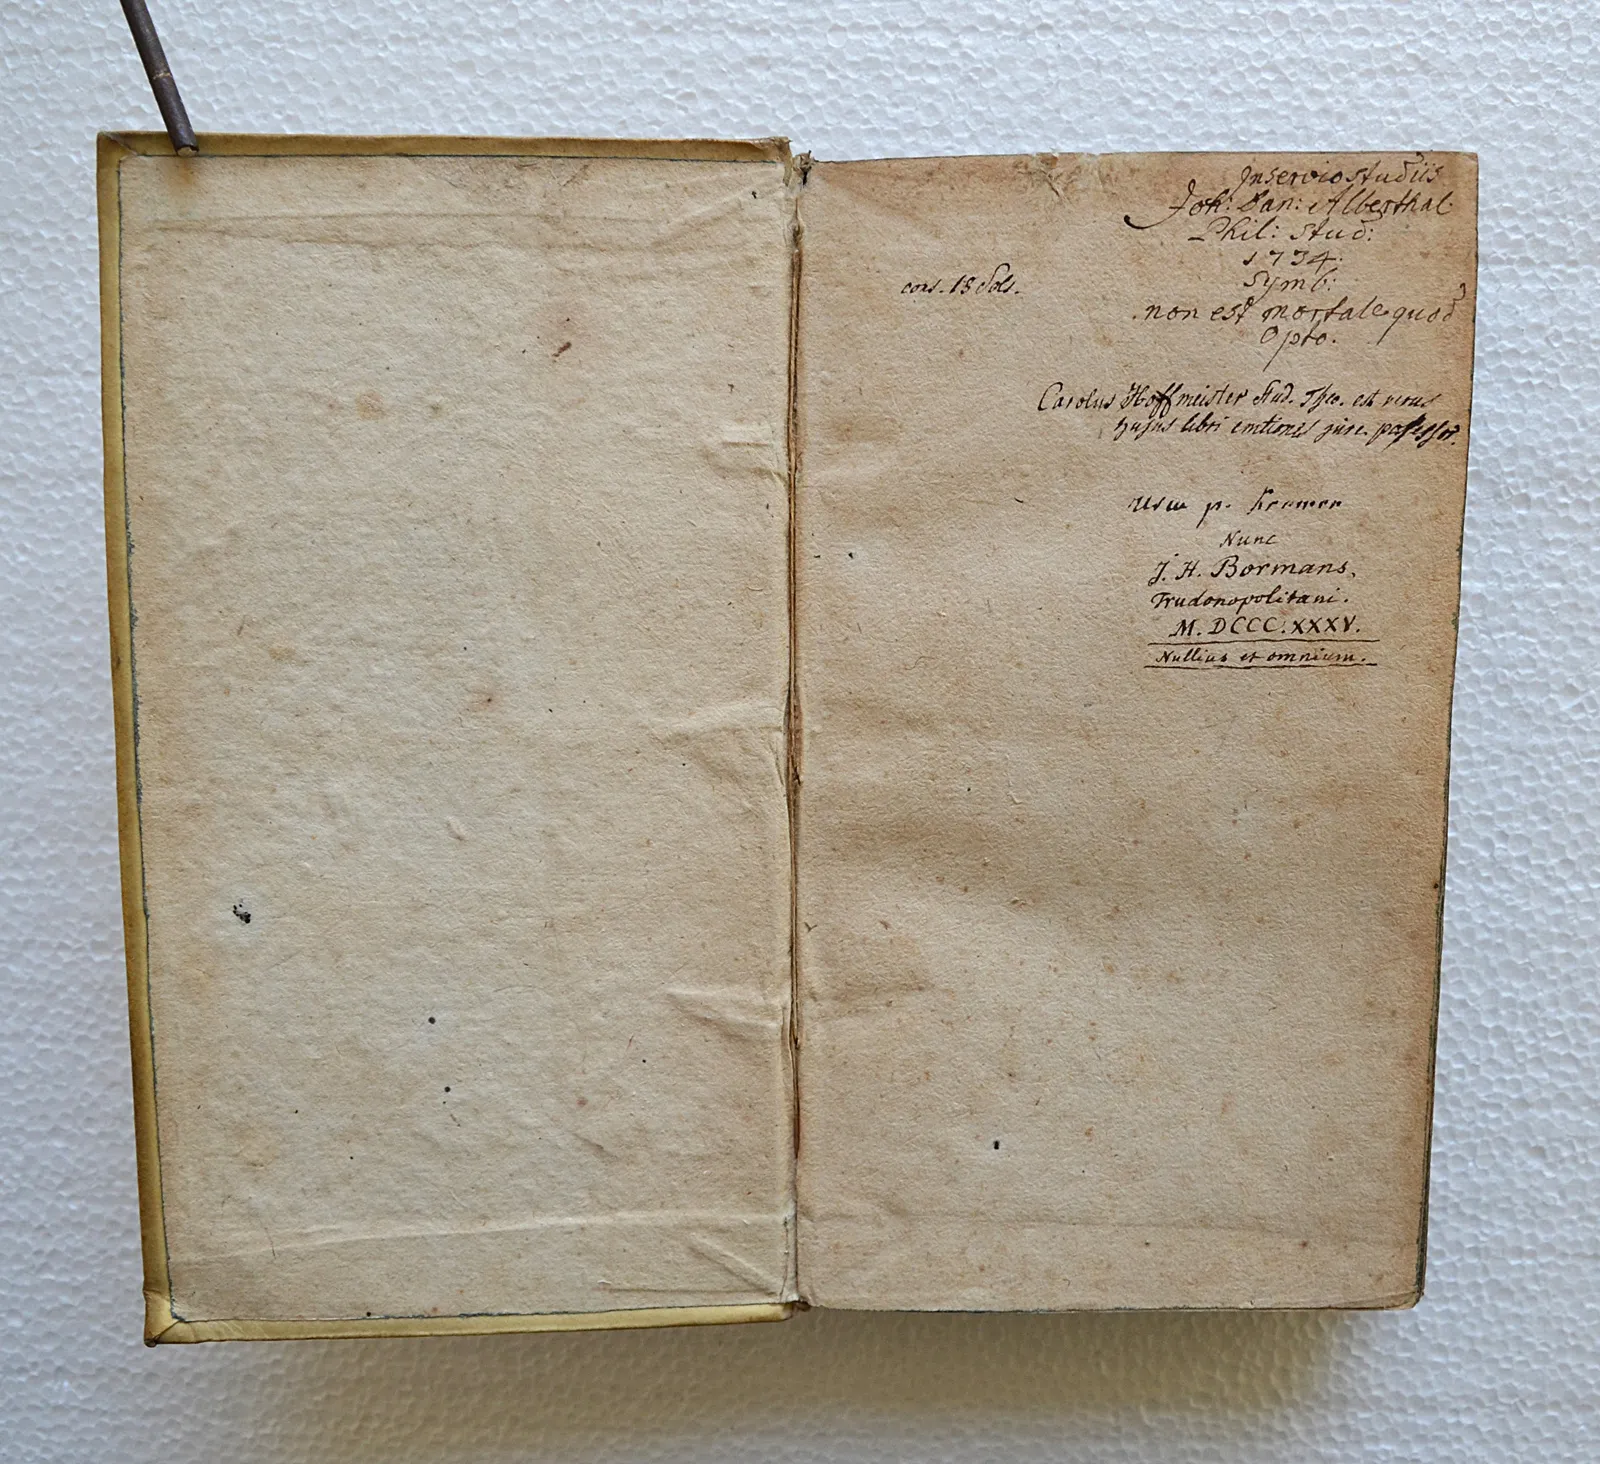 Inservio studiis
Joh: Dan: Alberthal
Phil: Stud:
1734.
Symb:
cons. 18 Sols.
non est mortale quod
Opto.
Carolus Hoffmeister Stud. Theo. est verus
hujus libri emtionis jure possessor.
Usui p. Kremer
Nunc
J. H. Bormans,
Trudonopolitani.
M. DCCC.XXXV.
Nullius et omnium.